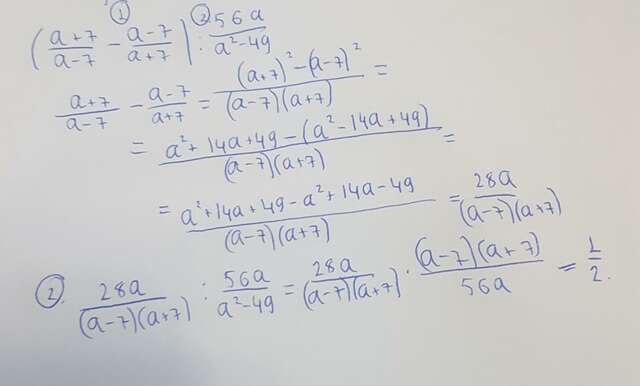 ① ②
((a+7)/(a-7) - (a-7)/(a+7)) : 56a/(a²-49)
(a+7)/(a-7) - (a-7)/(a+7) = ((a+7)² - (a-7)²)/((a-7)(a+7)) =
= (a² + 14a + 49 - (a² - 14a + 49))/((a-7)(a+7)) =
= (a² + 14a + 49 - a² + 14a - 49)/((a-7)(a+7)) = 28a/((a-7)(a+7))
②. 28a/((a-7)(a+7)) : 56a/(a²-49) = 28a/((a-7)(a+7)) · ((a-7)(a+7))/56a = 1/2.